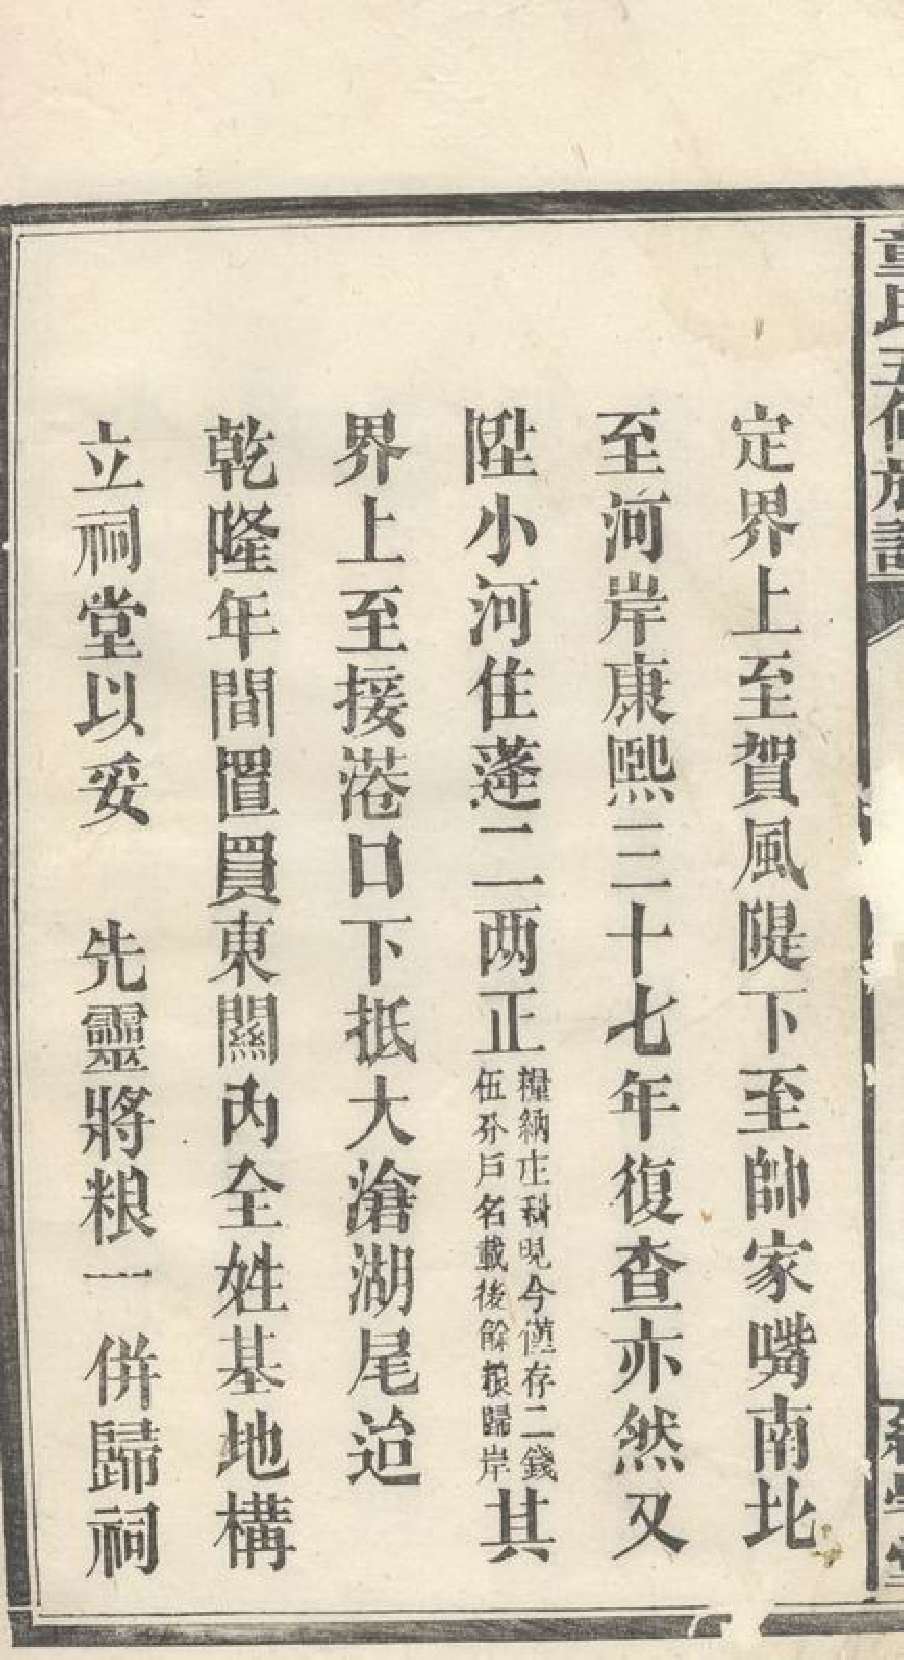 童氏五修族譜
定界上至賀風隄下至帥家嘴南北
至河岸康熙三十七年復查亦然又
陞小河住蓬二两正
糧納庄科現今僅存二錢
伍分戶名載後餘粮歸岸
其
界上至接港口下抵大滄湖尾迨
乾隆年間置買東關內全姓基地構
立祠堂以妥　先靈將粮一併歸祠